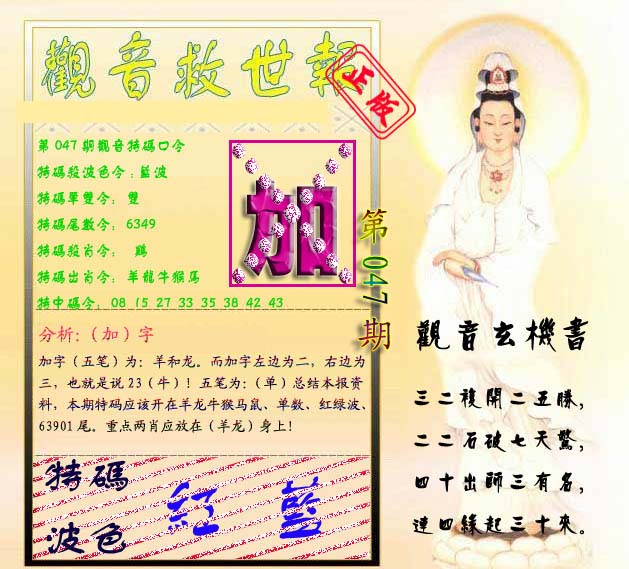 觀音救世報
正版
第047期觀音特碼口令
特碼殺波色令:藍波
特碼單雙令: 雙
特碼尾數令: 6349
特碼殺肖令: 鷄
特碼出肖令: 羊龍牛猴馬
特中碼令: 08 15 27 33 35 38 42 43
加
第047期
分析:(加)字
加字(五笔)为:羊和龙。而加字左边为二,右边为
三,也就是说23(牛)!五笔为:(单)总结本报资
料,本期特码应该开在羊龙牛猴马鼠、单数、红绿波、
63901尾。重点两肖应放在(羊龙)身上!
特碼
波色
紅 藍
觀音玄機書
三二複開二五勝,
二二石破七天驚,
四十出師三有名,
連四緣起三十來。